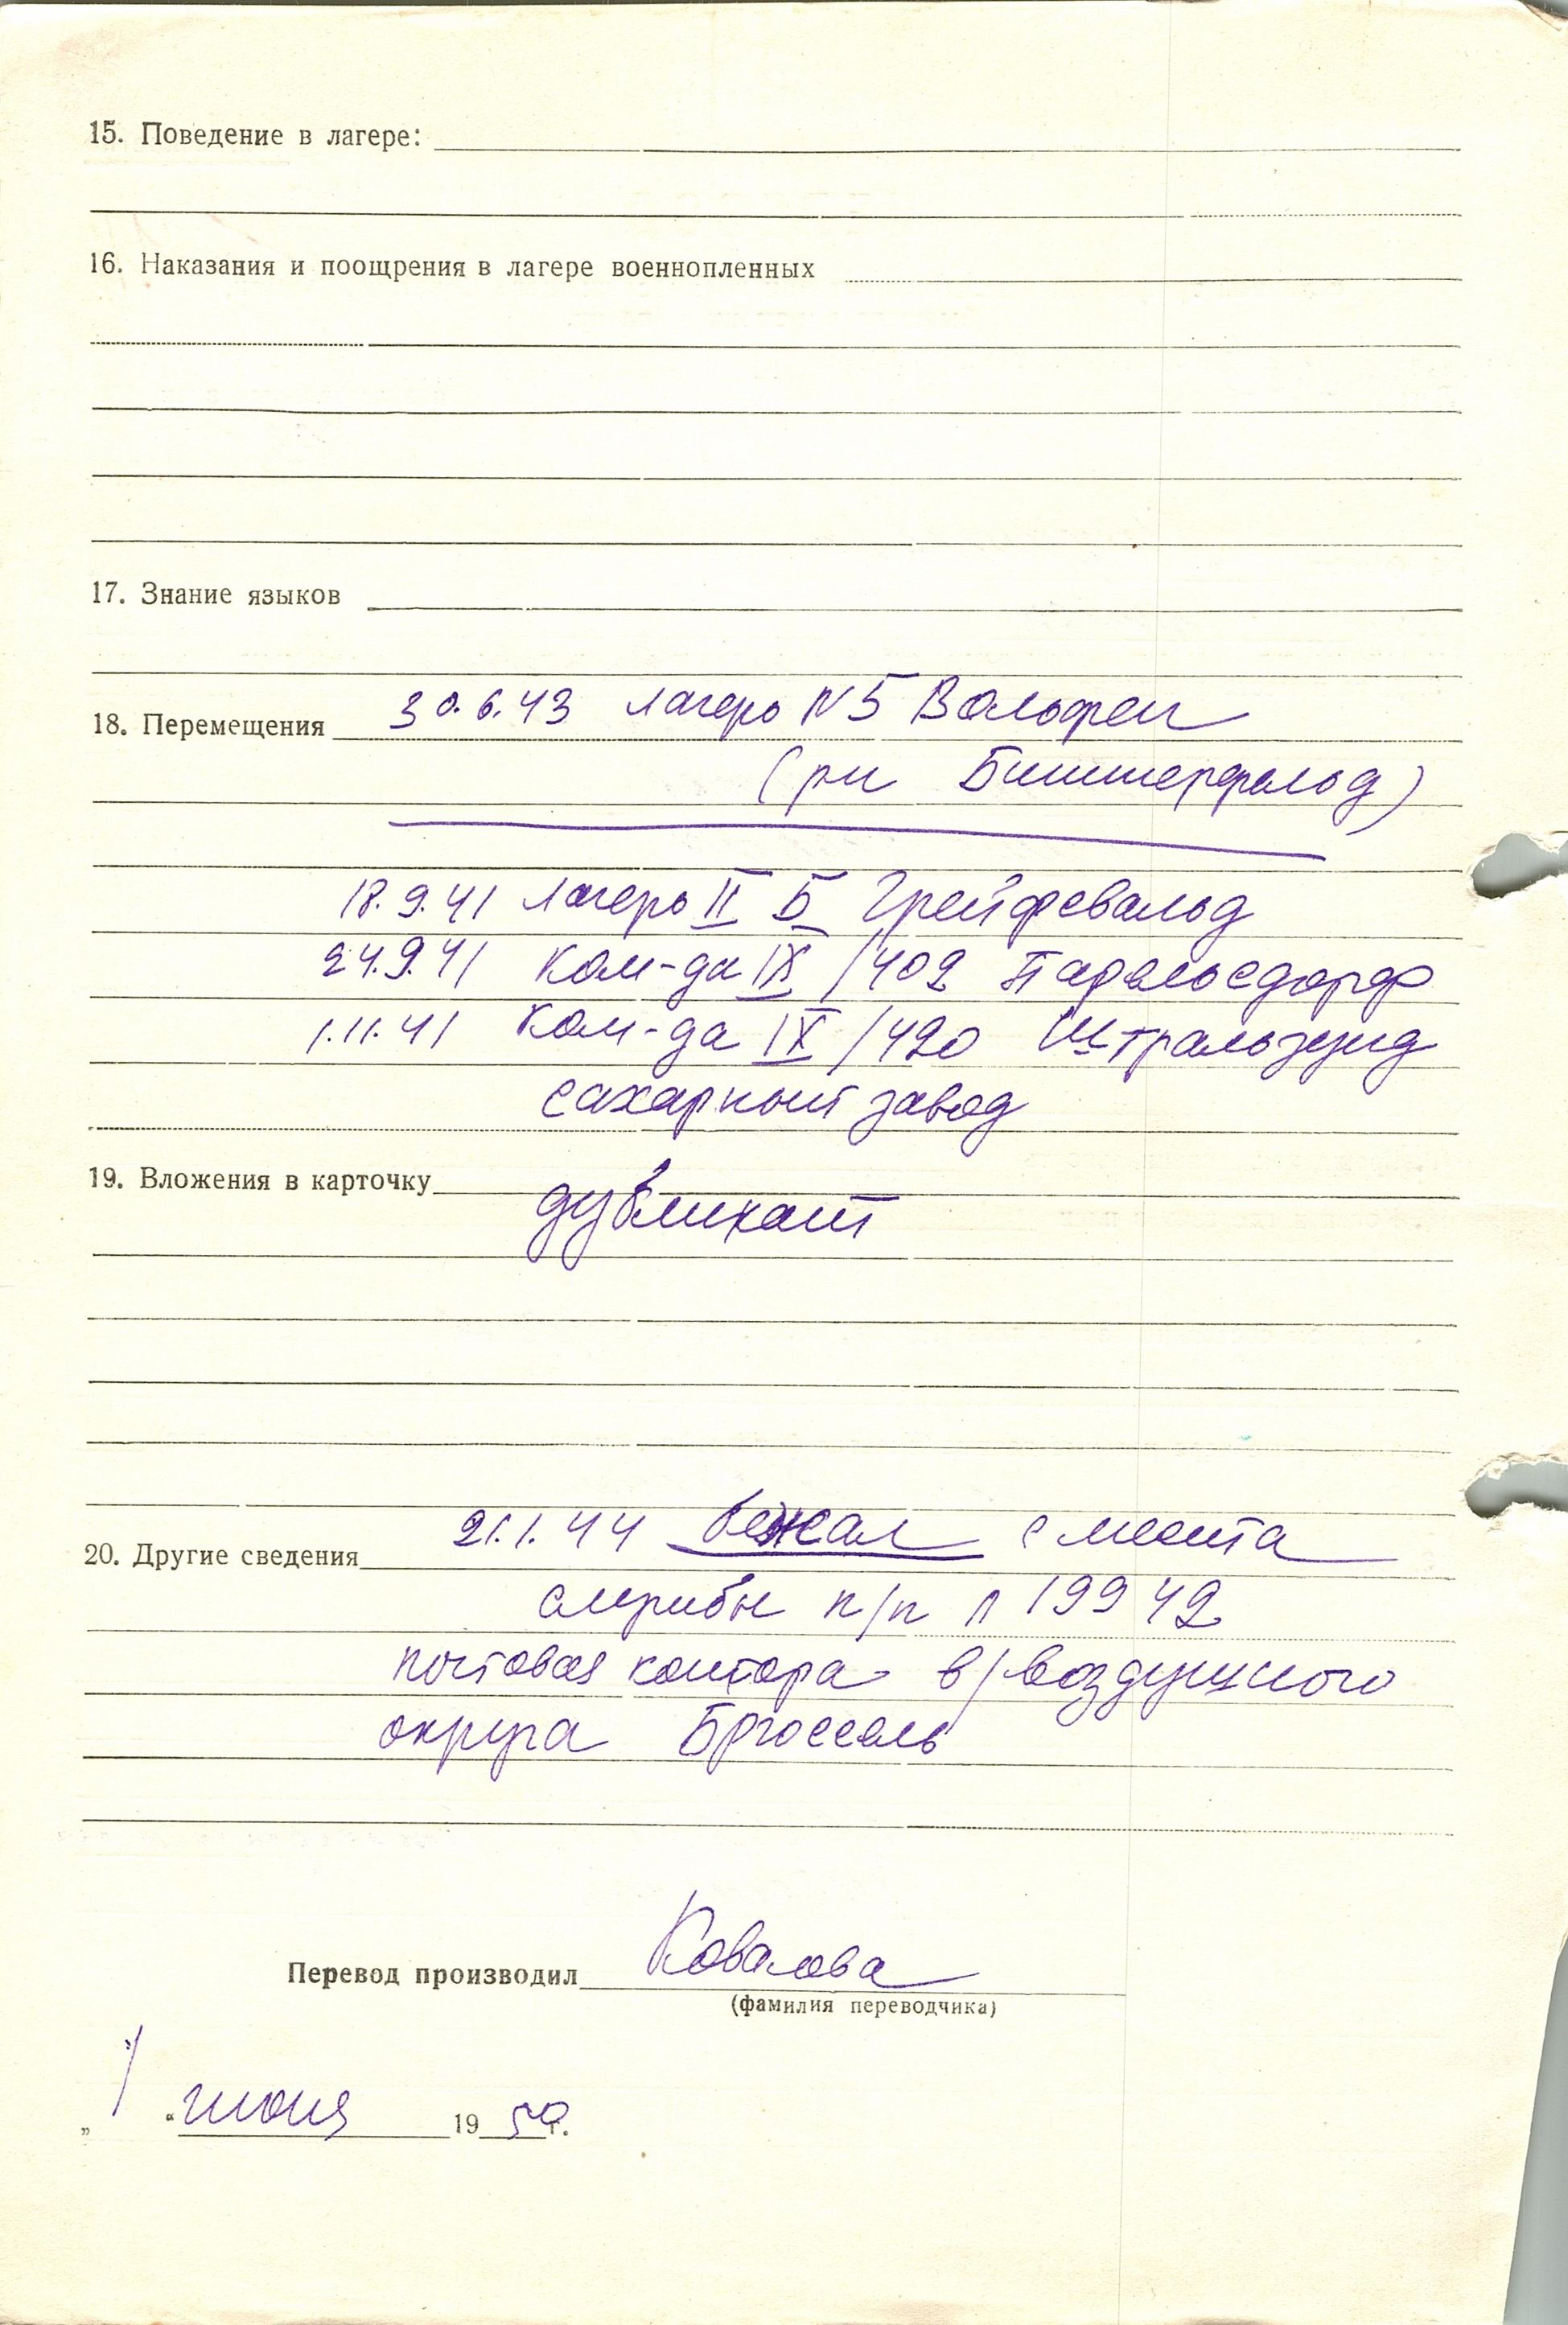 15. Поведение в лагере:
16. Наказания и поощрения в лагере военнопленных
17. Знание языков
18. Перемещения 30.6.43 лагерь N 5 Вольфен
(рн Биттерфельд)
18.9.41 лагерь II Б Грейфсвальд
24.9.41 Ком-да IX /402
1.11.41 Ком-да IX /420 Штральзунд
сахарный завод
19. Вложения в карточку
дубликат
20. Другие сведения 21.1.44 бежал с места
службы п/п Л 19942
почтовая контора в/воздушного
округа Брюссель
Перевод производил Ковалова
(фамилия переводчика)
„ 1 “ июня 1950г.